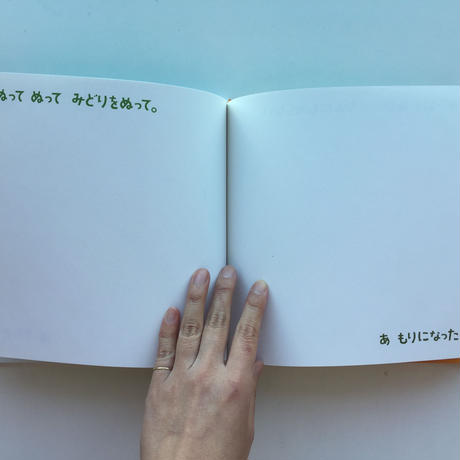 ぬって ぬって みどりをぬって。
あ もりになった